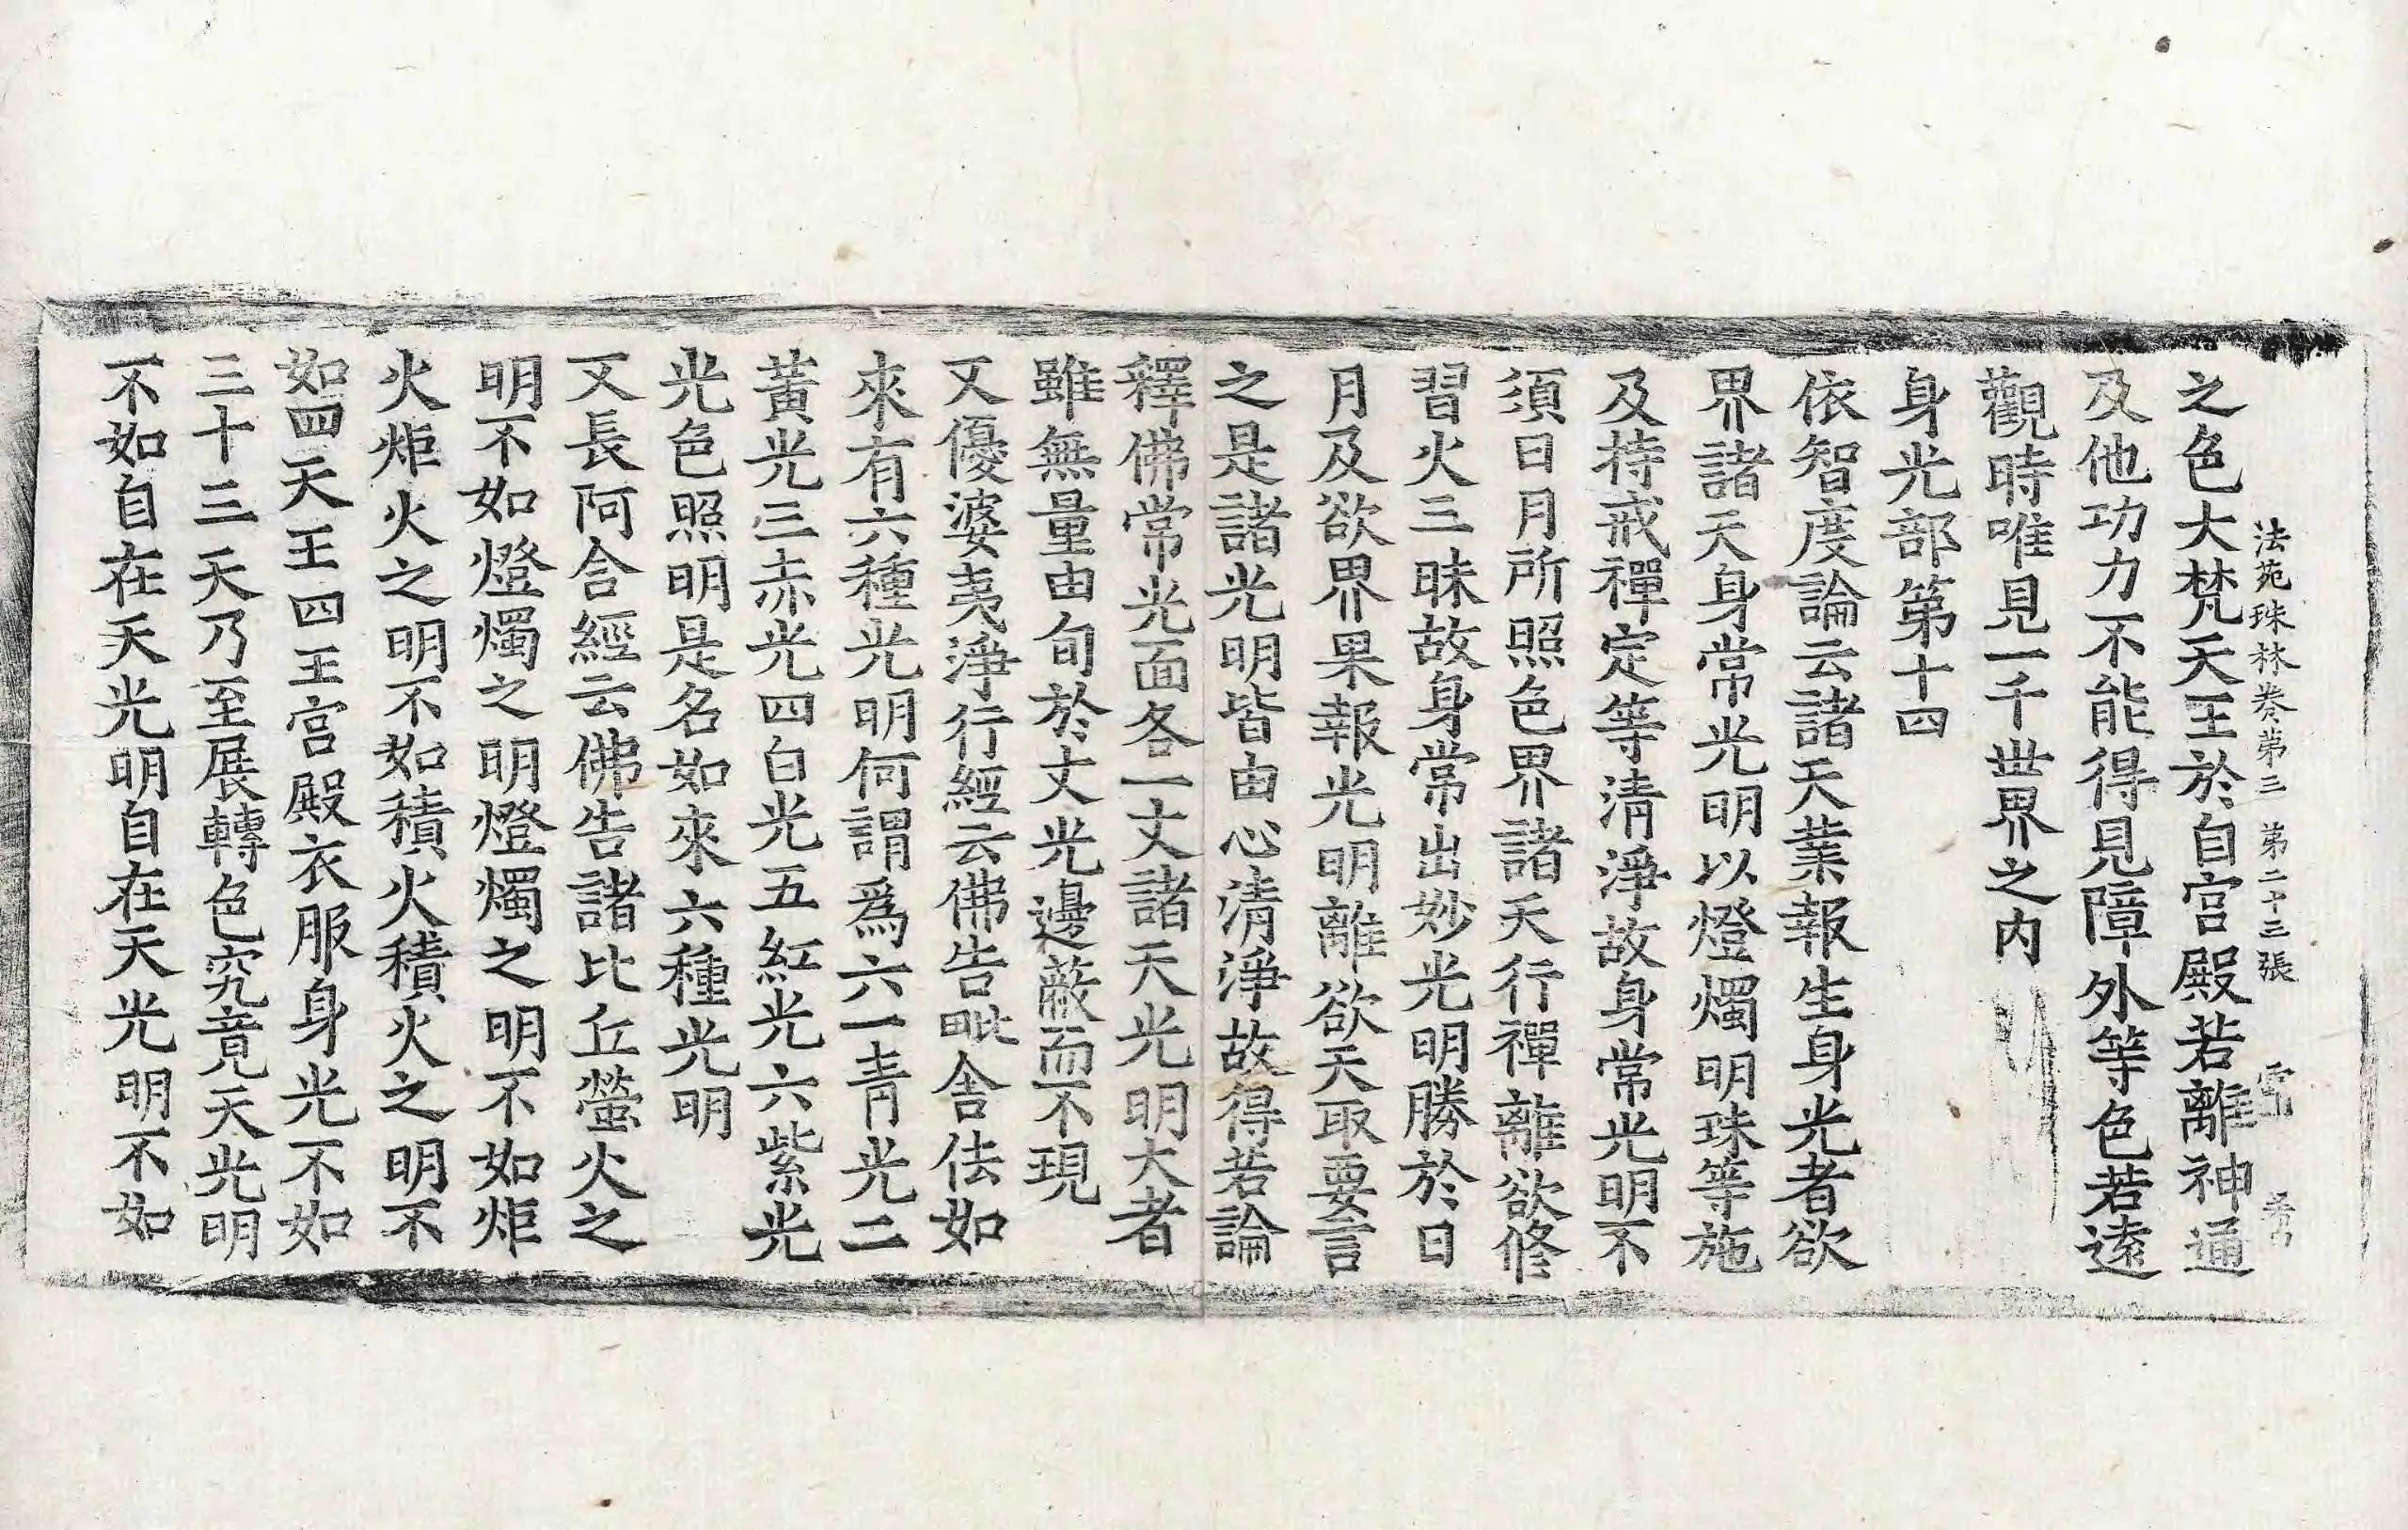 法苑珠林卷第三 第二十三張
之色大梵天王於自宮殿若離神通
及他功力不能得見障外等色若遠
觀時唯見一千世界之内
身光部第十四
依智度論云諸天業報生身光者欲
界諸天身常光明以燈燭明珠等施
及持戒禪定等清淨故身常光明不
須日月所照色界諸天行禪離欲修
習火三昧故身常出妙光明勝於日
月及欲界果報光明離欲天取要言
之是諸光明皆由心清淨故得若論
釋佛常光面各一丈諸天光明大者
雖無量由旬於丈光邊蔽而不現
又優婆夷淨行經云佛告毗舍佉如
來有六種光明何謂爲六一青光二
黃光三赤光四白光五紅光六紫光
光色照明是名如來六種光明
又長阿含經云佛告諸比丘螢火之
明不如燈燭之明燈燭之明不如炬
火炬火之明不如積火積火之明不
如四天王四王宮殿衣服身光不如
三十三天乃至展轉色究竟天光明
不如自在天光明自在天光明不如